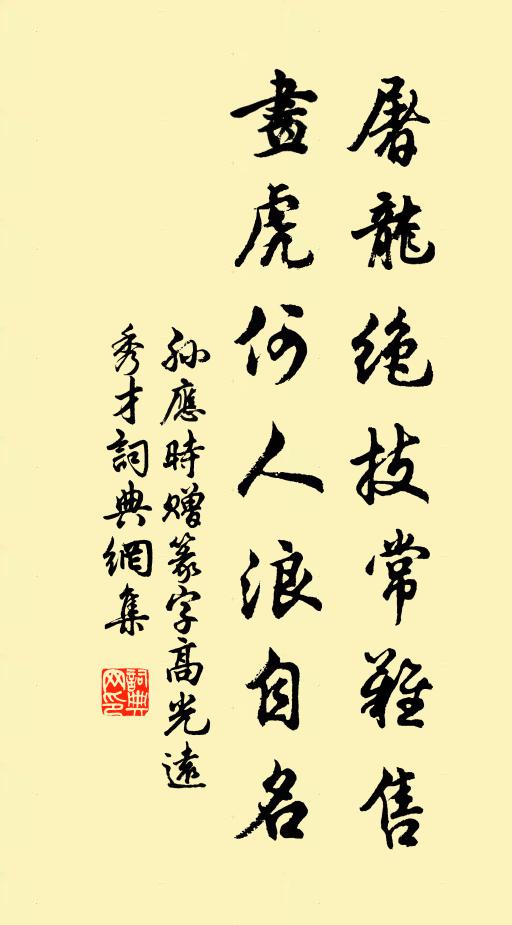 屠龍絶技常難售
畫虎何人浪自名
孫應時贈篆字高光遠
秀才詞典網集
詞典网印